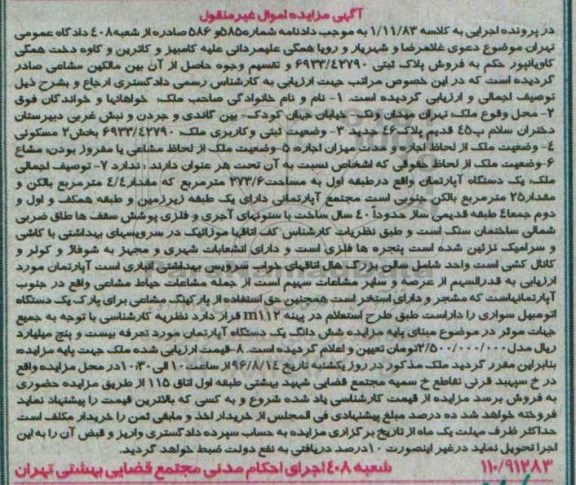 آگهی مزایده اموال غیرمنقول
در پرونده اجرایی به کلاسه ۱/۱۱/۸۳ به موجب دادنامه شماره ۵۸۵و ۵۸۶ صادره از شعبه۴۰۸ دادگاه عمومی
تهران موضوع دعوی غلامرضا و شهریار و رویا همگی علیمردانی علیه کامبیز و کاترین و کاوه دخت همگی
کاویانپور حکم به فروش پلاک ثبتی ۶۹۳۳/۴۲۷۹۰ و تقسیم وجوه حاصل از آن بین مالکین مشاعی صادر
گردیده است که در این خصوص مراتب جهت ارزیابی به کارشناس رسمی دادگستری ارجاع و بشرح ذیل
توصیف اجمالی و ارزیابی گردیده است. ۱- نام و نام خانوادگی صاحب ملک: خواهانها و خواندگان فوق
۲- محل وقوع ملک: تهران میدان ونک- خیابان جهان کودک- بین گاندی و جردن و نبش غربی دبیرستان
دختران سلام پ۴۵ قدیم پلاک۴۶ جدید ۳- وضعیت ثبتی و کاربری ملک: ۶۹۳۳/۴۲۷۹۰ بخش۲ مسکونی
۴- وضعیت ملک از لحاظ اجاره و مدت میزان اجاره: ۵-وضعیت ملک از لحاظ مشاعی یا مفروز بودن: مشاع
۶-وضعیت ملک از لحاظ حقوقی که اشخاص نسبت به آن تحت هر عنوان دارند: ندارد ۷- توصیف اجمالی
ملک: یک دستگاه آپارتمان واقع درطبقه اول به مساحت۳۷۳/۶ مترمربع که مقدار۴/۴ مترمربع بالکن و
مقدار۲۵ مترمربع بالکن جنوبی است مجتمع آپارتمانی دارای یک طبقه زیرزمین و طبقه همکف و اول و
دوم جمعا۴ طبقه قدیمی ساز حدوداً ۴۰ سال ساخت با ستونهای آجری و فلزی پوشش سقف ها طاق ضربی
شمالی ساختمان سنگ است و طبق نظریات کارشناس کف اتاقها موزائیک در سرویسهای بهداشتی با کاشی
و سرامیک تزئین شده است پنجره ها فلزی است و دارای انشعابات شهری و مجهز به شوفاژ و کولر و
کانال کشی است واحد شامل سالن بزرگ هال اتاقهای دولت سرویس بهداشتی انباری است آپارتمان مورد
ارزیابی به قدرالسهم از عرصه و سایر مشاعات سهیم است از جمله مشاعات حیاط مشاعی واقع در جنوب
آپارتمانهاست که مشجر و دارای استخر است همچنین حق استفاده از پارکینگ مشاعی برای پارک یک دستگاه
اتومبیل سواری را داراست طبق طرح استعلام در پهنه m۱۱۲ قرار دارد نظریه کارشناسی با توجه به جمیع
جهات موثر در موضوع مبنای پایه مزایده شش دانگ یک دستگاه آپارتمان مورد تعرفه بیست و پنج میلیارد
ریال معدل۲/۵۰۰/۰۰۰/۰۰۰تومان تعیین و اعلام گردیده است. ۸-قیمت ارزیابی شده ملک جهت پایه مزایده:
بنابراین مقرر گردید ملک مذکور در روز یکشنبه تاریخ ۹۶/۸/۱۴ از ساعت۱۰ الی ۱۰:۳۰در محل مزایده واقع
در خ سپهبد قرنی تقاطع خ سمیه مجتمع قضایی شهید بهشتی طبقه اول اتاق ۱۱۵ از طریق مزایده حضوری
به فروش برسد مزایده از قیمت کارشناسی یاد شده شروع و به کسی که بالاترین قیمت را پیشنهاد نماید
فروخته خواهد شد ده درصد مبلغ پیشنهادی فی المجلس از خریدار اخذ و مابقی ثمن را خریدار مکلف است
حداکثر ظرف مهلت یک ماه از تاریخ برگزاری مزایده به حساب سپرده دادگستری واریز و قبض آن را به این
اجرا تحویل نماید درغیر اینصورت ۱۰درصد دریافتی به نفع دولت ضبط خواهد گردید.
۱۱۰/۹۱۲۸۳ شعبه ۴۰۸ اجرای احکام مدنی مجتمع قضایی بهشتی تهران